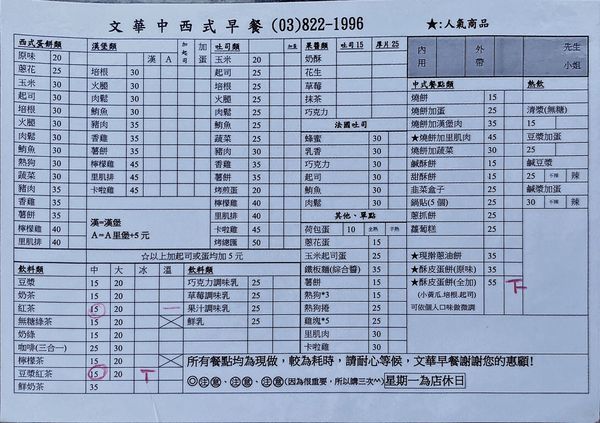 文華中西式早餐(03)822-1996 ★:人氣商品
西式蛋餅類
原味 20
蔥花 25
玉米 30
起司 30
培根 30
火腿 30
肉鬆 30
鮪魚 35
蔬菜 30
熱狗 35
蔬菜 30
豬肉 35
香雞 35
薯餅 35
檸檬雞 40
里肌排 40
漢堡類 漢 A 加起司 加蛋
培根 30
火腿 30
肉鬆 30
鮪魚 35
豬肉 35
香雞 35
薯餅 35
檸檬雞 45
里肌排 45
卡啦雞 45
漢=漢堡
A=A里堡+5元
吐司類 加蛋
玉米 20
起司 25
培根 25
火腿 25
肉鬆 25
鮪魚 25
蔬菜 25
香雞 30
薯餅 30
豬肉 30
烤煎蛋 20
檸檬雞 40
里肌排 40
卡啦雞 40
烤總匯 50
果醬類 吐司15 厚片25
奶酥
花生
草莓
抹茶
巧克力
法國吐司
蜂蜜 30
乳香 30
巧克力 30
起司 30
鮪魚 30
肉鬆 30
其他、單點
荷包蛋 10 全熟 半熟
蔥花蛋 20
玉米起司蛋 25
鐵板麵(綜合醬) 35
薯餅 15
熱狗*3 15
熱狗捲 25
雞塊*5 25
里肌肉 30
卡啦雞 30
內用 外帶 先生 小姐
中式餐點類
燒餅 15
燒餅加蛋 25
燒餅加漢堡肉 35
★燒餅加里肌肉 45
燒餅加蔬菜 30
鹹酥餅 15
甜酥餅 15
韭菜盒子 25
鍋貼(5個) 25
蔥抓餅 25
蘿蔔糕 25
★現擀蔥油餅 30
★酥皮蛋餅(原味) 35
★酥皮蛋餅(全加) 55 下
(小黃瓜.培根.起司)
可依個人口味做微調
熱飲
清漿(無糖)
15
豆漿加蛋
25
鹹豆漿
25 不辣 辣
鹹漿加蛋
30 不辣 辣
☆以上加起司或蛋均加5元
飲料類 中 大 冰 溫
豆漿 15 20
奶茶 15 20
紅茶 15 20 一
無糖綠茶 15 20
奶綠 15 20
咖啡(三合一) 25 30
檸檬茶 15 20
豆漿紅茶 15 20 T
鮮奶茶 35
飲料類
巧克力調味乳 25
草莓調味乳 25
果汁調味乳 25
鮮乳 25
所有餐點均為現做,較為耗時,請耐心等候,文華早餐謝謝您的惠顧!
◎注意、注意、注意(因為很重要,所以請三次^^)星期一為店休日